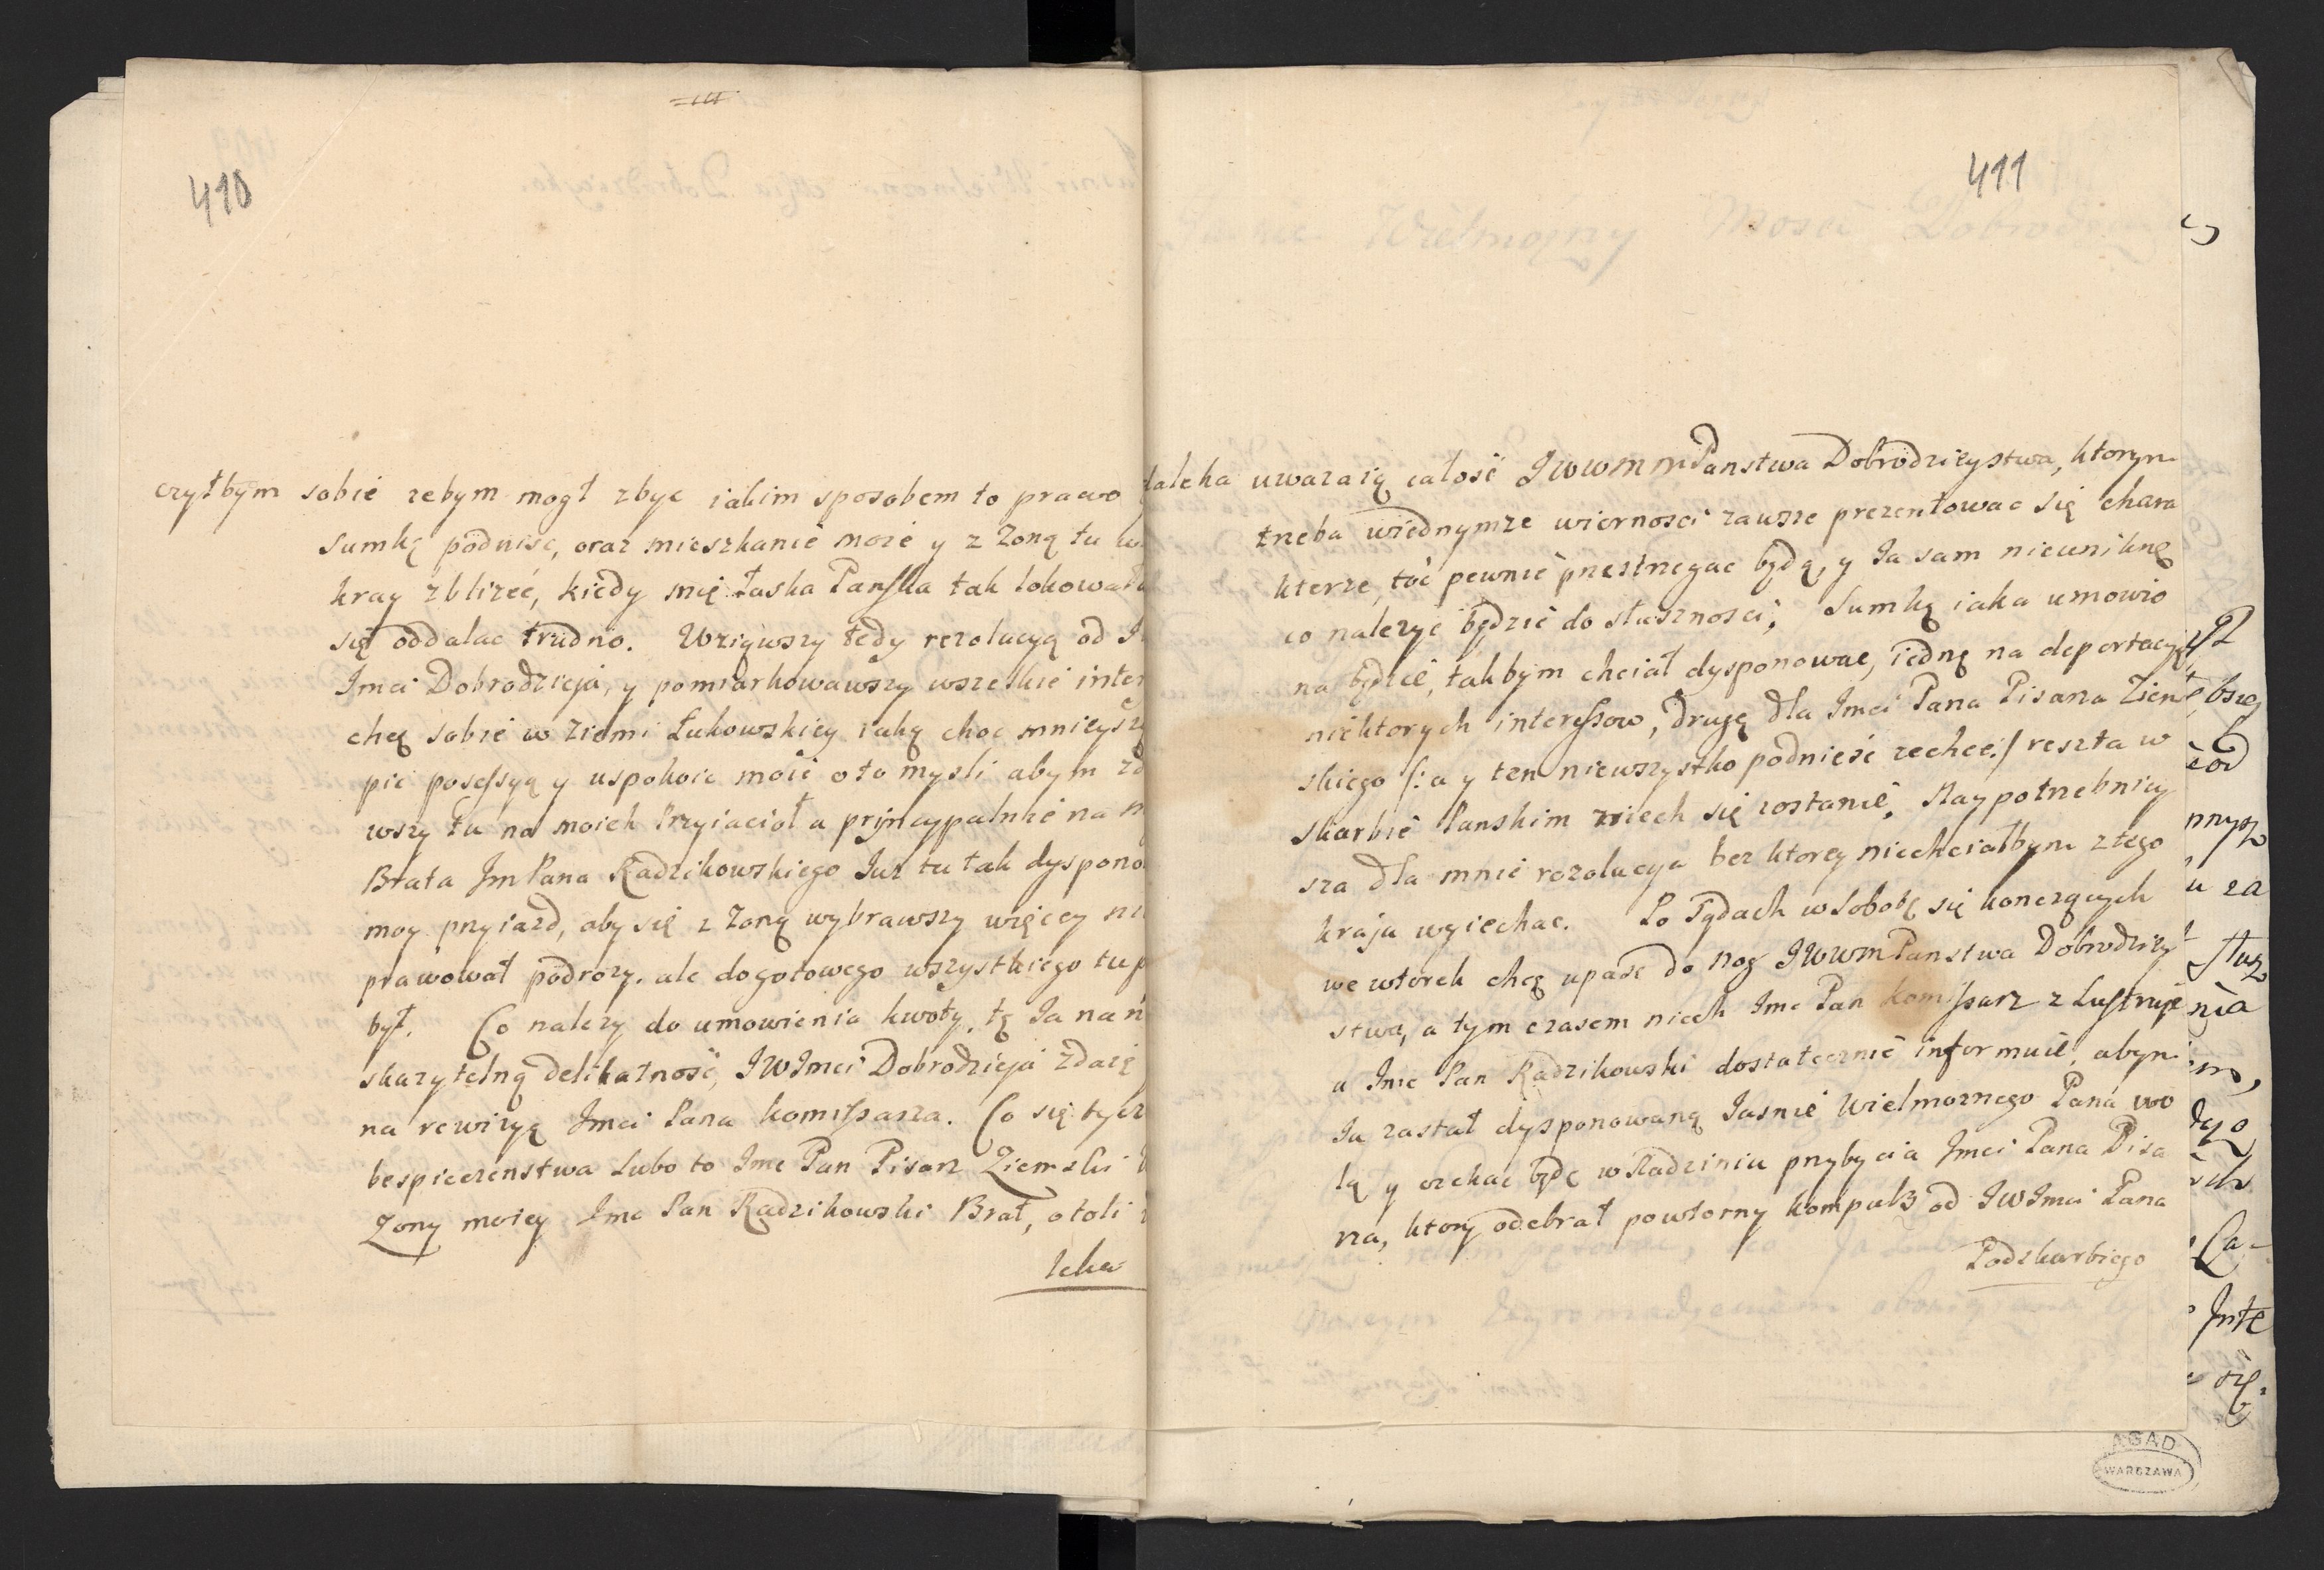 410
czyłbym sobie zebym mogł zbyc iakim sposobem to prawo
Sumkę podnisc, oraz mieszkanie moie y z Zoną tu w
kray zblizeć, kiedy mię łaska Panska tak lokowała
się oddalac trudno. Wziąwszy tedy rezolucyą od J
Jmci Dobrodzieja, y pomiarkowawszy wszelkie inter
chcę sobie w Ziemi Łukowskiey iaką choc mnieysz
pić posessyą y uspokoic moie oto mysli abym zd
wszy tu na moich Przyiacioł a pryncypalnie na
Brata JmPana Radzikowskiego Juz tu tak dyspono
moy przyiazd, aby się z Zoną wybrawszy więcey ni
prawował podrozy. ale do gotowego wszystkiego tu p
był. Co nalezy do umowienia kwoty, tę Ja na n
skazytelną delikatnosć, JWJmci Dobrodzieja zdaię
na rewizyą Jmci Pana Komissarza. Co się tycz
bespieczenstwa Lubo to Jmc Pan Pisarz Ziemski
Zony moiey Jmc Pan Radzikowski Brat, otoli
leka
411
daleka uwazaią całosć JWWMMPanstwa Dobrodzieystwa, ktorym
trzeba wiednymze wiernosci zawsze prezentowac się chara
kterze, toć pewnie przestrzegac będą, y Ja sam nieuniknę
co nalezyc będzie do słusznosci; Sumkę iaka umowio
na będzie, takbym chciał dysponowac, iednę na deportacyą
niektorych interessow, drugą dla Jmci Pana Pisarza Ziem
skiego /: a y ten niewszystko podniesć zechce:/ reszta w
Skarbie Panskim niech się zostanie, Naypotrzebniey
sza dla mnie rezolucya bez ktorey niechciałbym z tego
kraju wyiechac. Po Sądach w Sobotę się konczących
we wtorek chcę upasc do Nog JWWMPanstwa Dobrodziey
stwa, a tym czasem niech Jmc Pan Komissarz z Lustruje
a Jmc Pan Radzikowski dostatecznie informuie, abym
Ja zastał dysponowaną Jasnie Wielmoznego Pana wo
lą y czekac będę w Radziniu przybycia Jmci Pana Pisa
rza, ktory odebrał powtorny kompuls od JWJmci Pana
Podskarbiego
AGAD
WARSZAWA